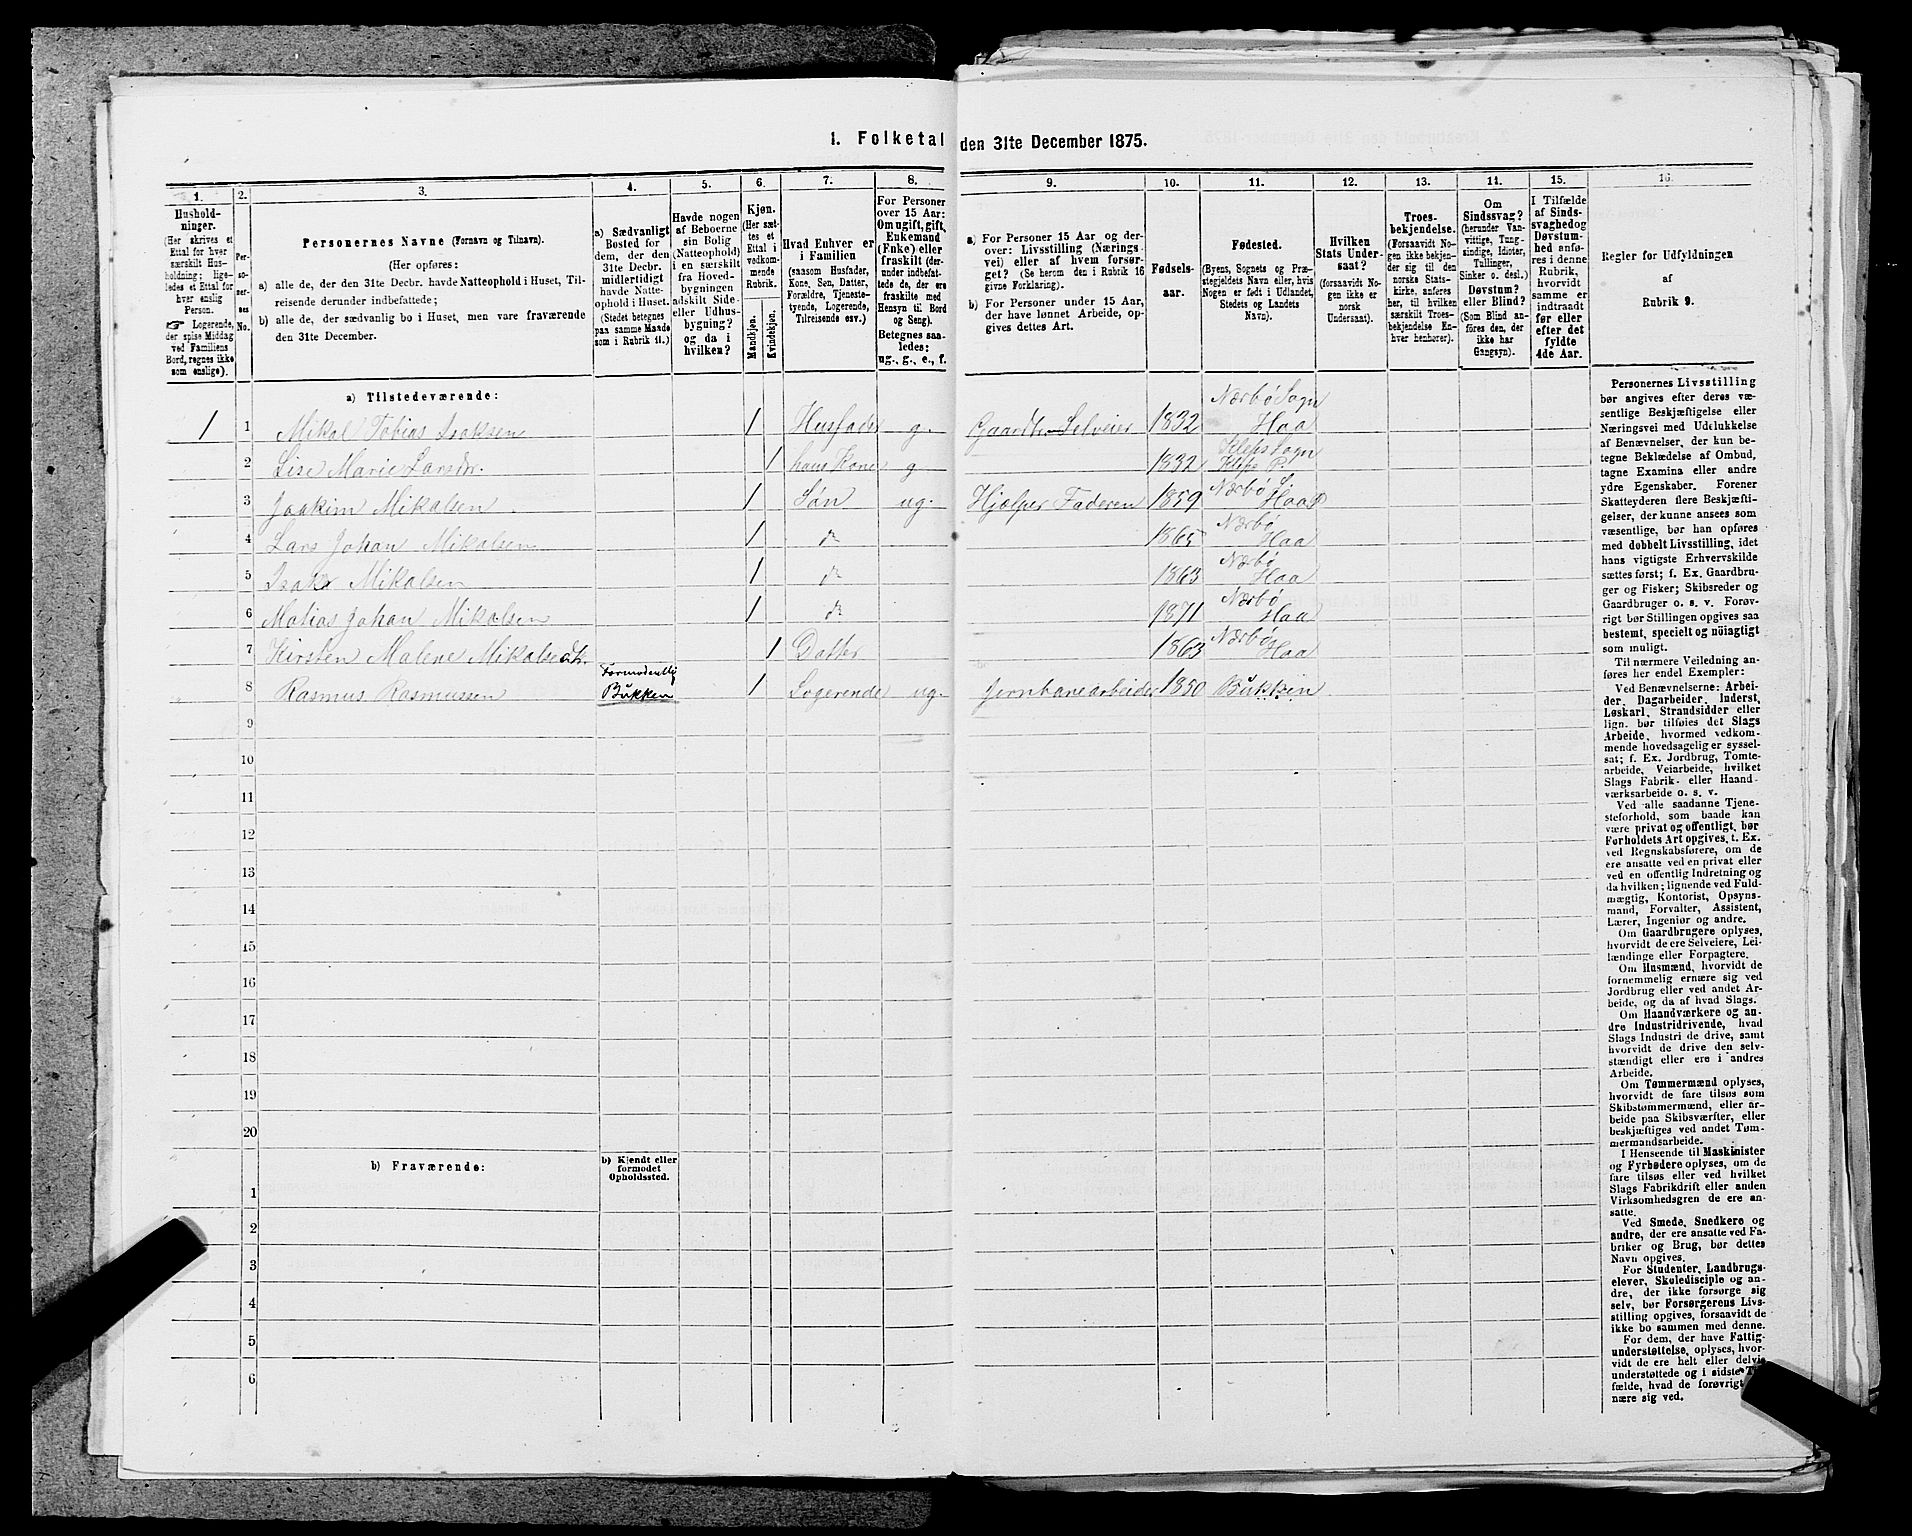 1. Folketal den 31te December 1875.
1.
2.
3.
4.
5.
6.
7.
8.
9.
10.
11.
12.
13.
14.
15.
16.
Hushold-
ninger.
(Her skrives et
Ettal for hver
særskilt Hus-
holdning; lige-
ledes et Ettal for
hver enslig
Person.
☞ Logerende,
der spise Middag
ved Familiens
Bord, regnes ikke
som enslige).
Per-
so-
ner-
nes
No.
Personernes Navne (Fornavn og Tilnavn).
(Her opføres:
a) alle de, der den 31te Decbr. havde Natteophold i Huset, Til-
reisende derunder indbefattede;
b) alle de, der sædvanlig bo i Huset, men vare fraværende
den 31te December.
a) Sædvanligt
Bosted for
dem, der den
31te Decbr.
midlertidigt
havde Natte-
ophold i Huset.
(Stedet betegnes
paa samme Maade
som i Rubrik 11.)
Havde nogen
af Beboerne
sin Bolig
(Natteophold)
i en særskilt
fra Hoved-
bygningen
adskilt Side-
eller Udhus-
bygning?
og da i
hvilken?
Kjøn.
(Her sæt-
tes et
Ettal i
vedkom-
mende
Rubrik.
Mandkjøn.
Kvindekjøn.
Hvad Enhver er
i Familien
(saasom Husfader,
Kone, Søn, Datter,
Forældre, Tjeneste-
tyende, Logerende,
Tilreisende osv.)
For Personer
over 15 Aar:
Om ugift, gift,
Enkemand
(Enke) eller
fraskilt (der-
under indbefat-
tede de, der ere
fraskilte med
Hensyn til Bord
og Seng).
Betegnes saa-
ledes:
ug., g., e., f.
a) For Personer 15 Aar og der-
over: Livsstilling (Nærings-
vei) eller af hvem forsør-
get? (Se herom den i Rubrik 16
givne Forklaring).
b) For Personer under 15 Aar,
der have lønnet Arbeide, op-
gives dettes Art.
Fødsels-
aar.
Fødested.
(Byens, Sognets og Præ-
stegjeldets Navn eller, hvis
Nogen er født i Udlandet,
Stedets og Landets
Navn).
Hvilken
Stats Under-
saat?
(forsaavidt No-
gen ikke er
norsk
Undersaat).
Troes-
bekjendelse.
(Forsaavidt No-
gen ikke bekjen-
der sig til den
norske Stats-
kirke, anføres
her, til hvilken
særskilt Troes-
bekjendelse En-
hver henhører).
Om
Sindssvag?
(herunder Van-
vittige, Tung-
sindige, Idioter,
Tullinger,
Sinker o. desl.)
Døvstum?
eller Blind?
(Som Blind an-
føres den, der
ikke har
Gangsyn).
I Tilfælde
af Sinds-
svaghed og
Døvstum-
hed anfø-
res i denne
Rubrik,
hvorvidt
samme er
indtraadt
før eller
efter det
fyldte
4de Aar.
Regler for Udfyldningen
af
Rubrik 9.
a) Tilstedeværende:
1 1 Mikal Tobias Isaksen 1 Husfader g. Gaardbr Selveier 1832 Nærbø Sogn Haa
2 Lise Marie Larsdtr. 1 hans Kone g 1832 Kleps Sogn Kleps P.
3 Joakim Mikalsen 1 Søn ug. Hjælper Faderen 1859 Nærbø S. Haa P
4 Lars Johan Mikalsen 1 do 1865 Nærbø Haa
5 Isak Mikalsen 1 do 1863 Nærbø Haa
6 Matias Johan Mikalsen 1 do 1871 Nærbø Haa
7 Kirsten Malene Mikalsedtr. 1 Datter 1863 Nærbø Haa
8 Rasmus Rasmussen Formodentlig Bukken 1 Logerende ug. Jernbanearbeider 1850 Bukken
9
10
11
12
13
14
15
16
17
18
19
20
b) Fraværende:
b) Kjendt eller
formodet
Opholdssted.
1
2
3
4
5
6
Personernes Livsstilling
bør angives efter deres væ-
sentlige Beskjæftigelse eller
Næringsvei med Udelukkelse
af Benævnelser, der kun be-
tegne Beklædelse af Ombud,
tagne Examina eller andre
ydre Egenskaber. Forener
Skatteyderen flere Beskjæfti-
gelser, der kunne ansees som
væsentlige, bør han opføres
med dobbelt Livsstilling, idet
hans vigtigste Erhvervskilde
sættes først; f. Ex. Gaardbru-
ger og Fisker; Skibsreder og
Gaardbruger o. s. v. Forøv-
rigt bør Stillingen opgives saa
bestemt, specielt og nøiagtigt
som muligt.
Til nærmere Veiledning an-
føres her endel Exempler:
Ved Benævnelserne: Arbei-
der, Dagarbeider, Inderst,
Løskarl, Strandsidder eller
lign. bør tilføies det Slags
Arbeide, hvormed vedkom-
mende hovedsagelig er syssel-
sat; f. Ex. Jordbrug, Tomte-
arbeide, Veiarbeide, hvilket
Slags Fabrik- eller Haand-
værksarbeide o. s. v.
Ved alle saadanne Tjene-
steforhold, som baade kan
være privat og offentligt, bør
Forholdets Art opgives, t. Ex.
ved Regnskabsførere, om de
ere ansatte ved en privat eller
ved en offentlig Indretning og
da hvilken; lignende ved Fuld-
mægtig, Kontorist, Opsyns-
mand, Forvalter, Assistent,
Lærer, Ingeniør og andre.
Om Gaardbrugere oplyses,
hvorvidt de ere Selveiere, Lei-
lændinge eller Forpagtere.
Om Husmænd, hvorvidt de
fornemmelig ernære sig ved
Jordbrug eller ved andet Ar-
beide, og da af hvad Slags.
Om Haandværkere og an-
dre Industridrivende, hvad
Slags Industri de drive, samt
hvorvidt de drive den selv-
stændigt eller ere i andres
Arbeide.
Om Tømmermænd oplyses,
hvorvidt de fare tilsøs som
Skibstømmermænd, eller ar-
beide paa Skibsværfter, eller
beskjæftiges ved andet Tøm-
mermandsarbeide.
I Henseende til Maskinister
og Fyrbødere oplyses, om de
fare tilsøs eller ved hvilket
Slags Fabrikdrift eller anden
Virksomhedsgren de ere an-
satte.
Ved Smede, Snedkere og
andre, der ere ansatte ved Fa-
briker og Brug, bør dettes
Navn opgives.
For Studenter, Landbrugs-
elever, Skoledisciple og an-
dre, der ikke forsørge sig
selv, bør Forsørgerens Livs-
stilling opgives, forsaavidt de
ikke bo sammen med denne.
For dem, der have Fattig-
understøttelse, oplyses, hvor-
vidt de ere helt eller delvis
understøttede og i sidste
fælde, hvad de forøvrigt
nære sig ved.